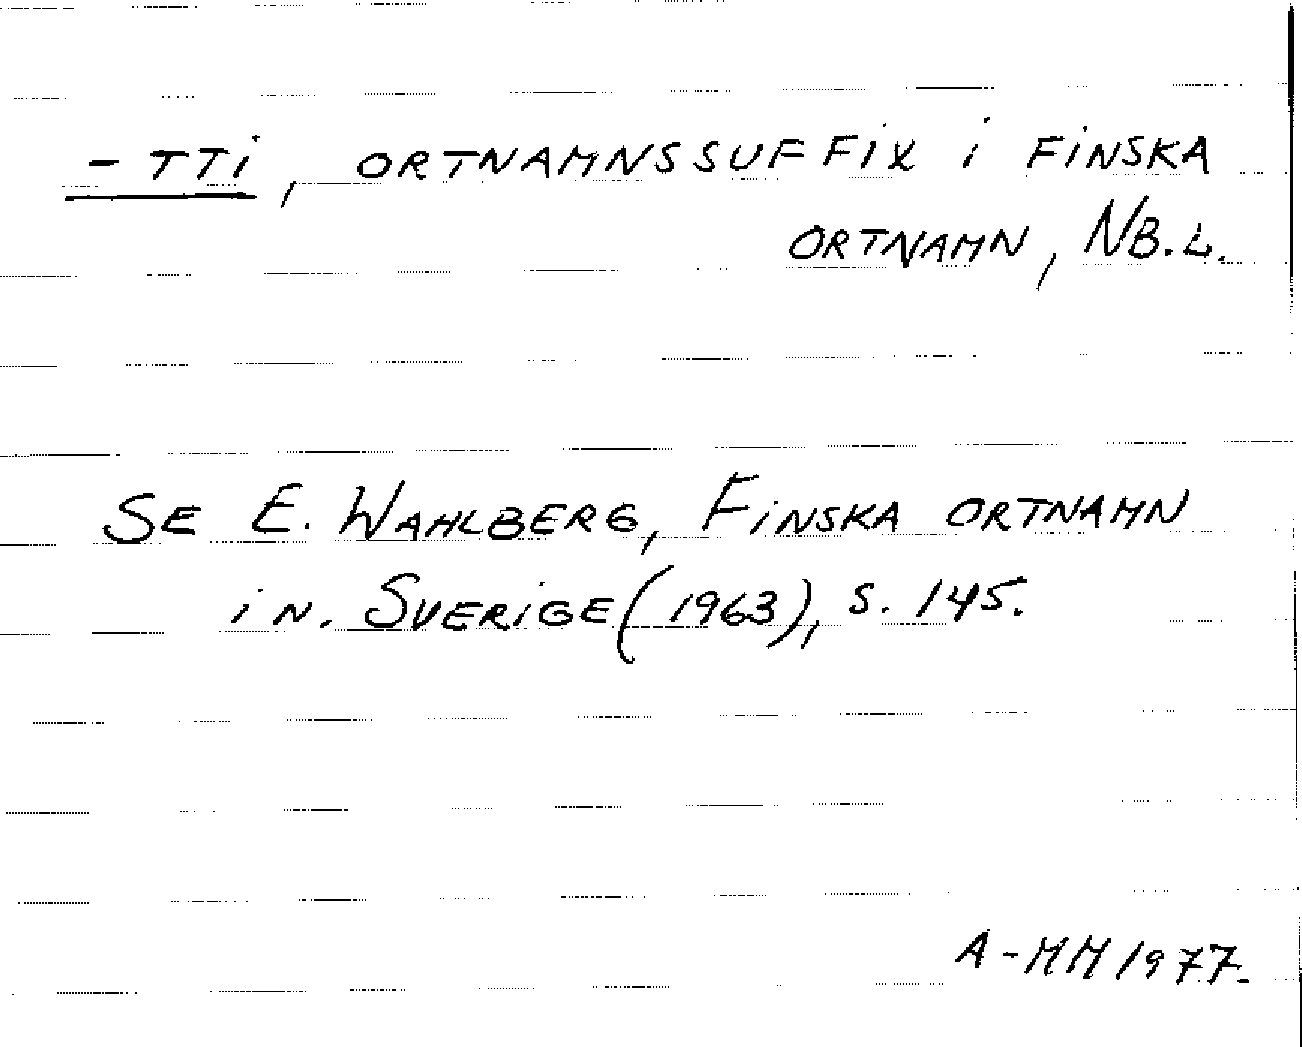 - TTi, ORTNAMNSSUFFIX i FiNSKA
ORTNAMN, NB.L.
SE E. WAHLBERG, FiNSKA ORTNAMN
i N. SVERiGE (1963), S. 145.
A-MM 1977.